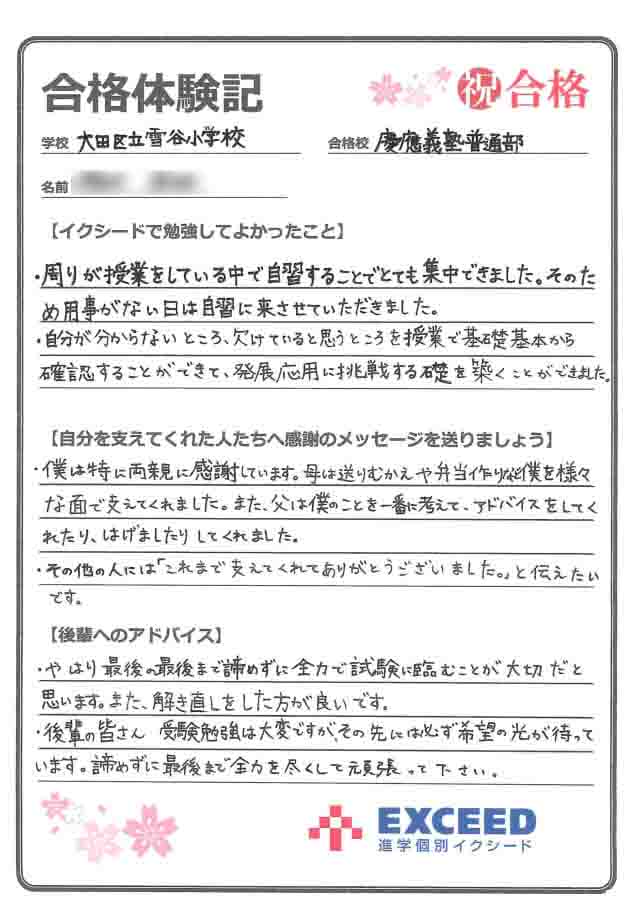 合格体験記
祝 合格
学校 大田区立雪谷小学校
合格校 慶應義塾普通部
名前
【イクシードで勉強してよかったこと】
・周りが授業をしている中で自習することでとても集中できました。そのた
め用事がない日は自習に来させていただきました。
・自分が分からないところ、欠けていると思うところを授業で基礎基本から
確認することができて、発展応用に挑戦する礎を築くことができました。
【自分を支えてくれた人たちへ感謝のメッセージを送りましょう】
・僕は特に両親に感謝しています。母は送りむかえや弁当作りなど僕を様々
な面で支えてくれました。また、父は僕のことを一番に考えて、アドバイスをしてく
れたり、はげましたりしてくれました。
・その他の人には「これまで支えてくれてありがとうございました。」と伝えたい
です。
【後輩へのアドバイス】
・やはり最後の最後まで諦めずに全力で試験に臨むことが大切だと
思います。また、解き直しをした方が良いです。
・後輩の皆さん 受験勉強は大変ですが、その先には必ず希望の光が待って
います。諦めずに最後まで全力を尽くして頑張って下さい。
EXCEED
進学個別イクシード